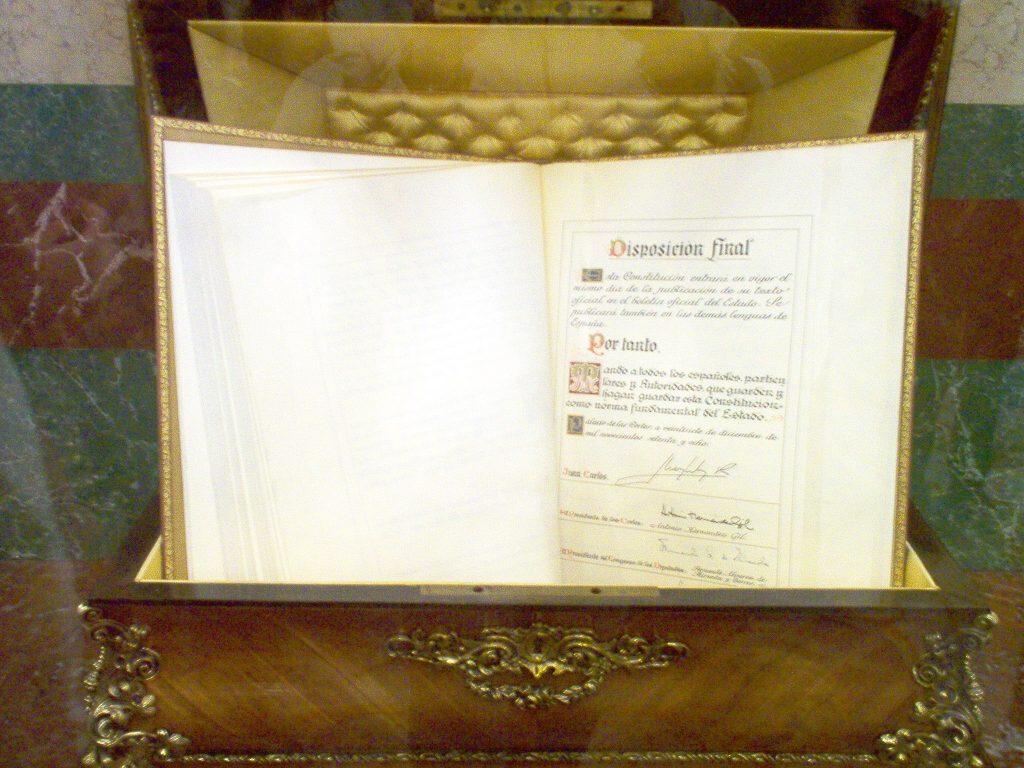 Disposicion final
Esta Constitución entrará en vigor el
mismo día de la publicación de su texto
oficial en el boletín oficial del Estado. Se
publicará también en las demás lenguas de
España.
Por tanto,
Mando a todos los españoles, particu
lares y Autoridades, que guarden y
hagan guardar esta Constitución
como norma fundamental del Estado.
Palacio de las Cortes, a veintisiete de diciembre de
mil novecientos setenta y ocho.
Juan Carlos
El Presidente de las Cortes,
Antonio Hernández Gil
El Presidente del Congreso de los Diputados,
Fernando Álvarez de
Miranda y Torres